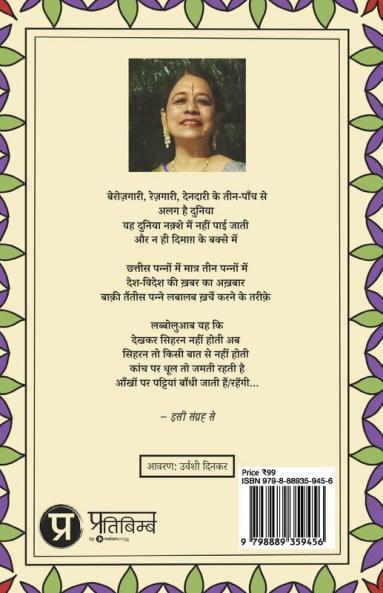 बेरोज़गारी, रेज़गारी, देनदारी के तीन-पाँच से
अलग है दुनिया
यह दुनिया नक़्शे में नहीं पाई जाती
और न ही दिमाग़ के बक्से में
छत्तीस पन्नों में मात्र तीन पन्नों में
देश-विदेश की ख़बर का अख़बार
बाक़ी तैंतीस पन्ने लबालब ख़र्च करने के तरीक़े
लब्बोलुआब यह कि
देखकर सिहरन नहीं होती अब
सिहरन तो किसी बात से नहीं होती
कांच पर धूल तो जमती रहती है
आँखों पर पट्टियां बाँधी जाती हैं/रहेंगी...
– इसी संग्रह से
आवरण: उर्वशी दिनकर
Price ₹99
ISBN 979-8-88935-945-6
9 798889 359456
प्र प्रतिबिम्ब
by notionpress